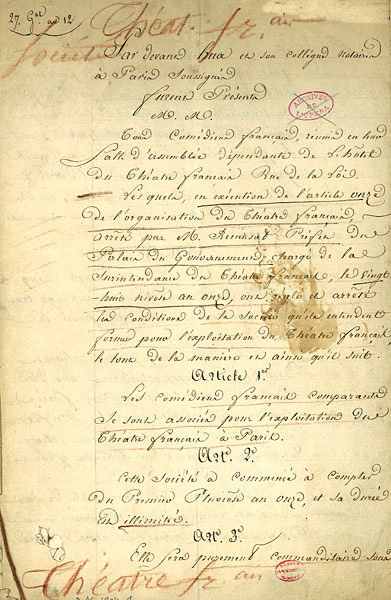 27. Gal an 12
Théat. fr. ais
Société
Par devant Hua et son collègue notaires
à Paris Soussignés
furent Présents
M. M.
Tous Comédiens français réunis en leur
Salle d'assemblée dépendante de L'hôtel
du Théatre francais Rue de la Loi.
ARCHIVES
DE
L'OPERA
Lesquels, en exécution de l'article onze
de l'organisation du Théatre français,
arrêté par M. Remusat Préfet du
Palais du Gouvernement chargé de la
Surintendance du Théatre français, le vingt
-huit nivose an onze, ont réglé et arrêté
les conditions de la Société qu'ils entendent
former pour l'exploitation du Théatre français,
le tout de la manière et ainsi qu'il suit.
Article 1er
Les comédiens français comparants
Se sont associés pour l'exploitation du
Théatre français à Paris.
Art. 2e
Cette Société a commencé à compter
du Premier Pluviôse an onze, et sa durée
Est illimitée.
Art. 3e
Elle sera purement Commanditaire sous
Théatre fr. ais